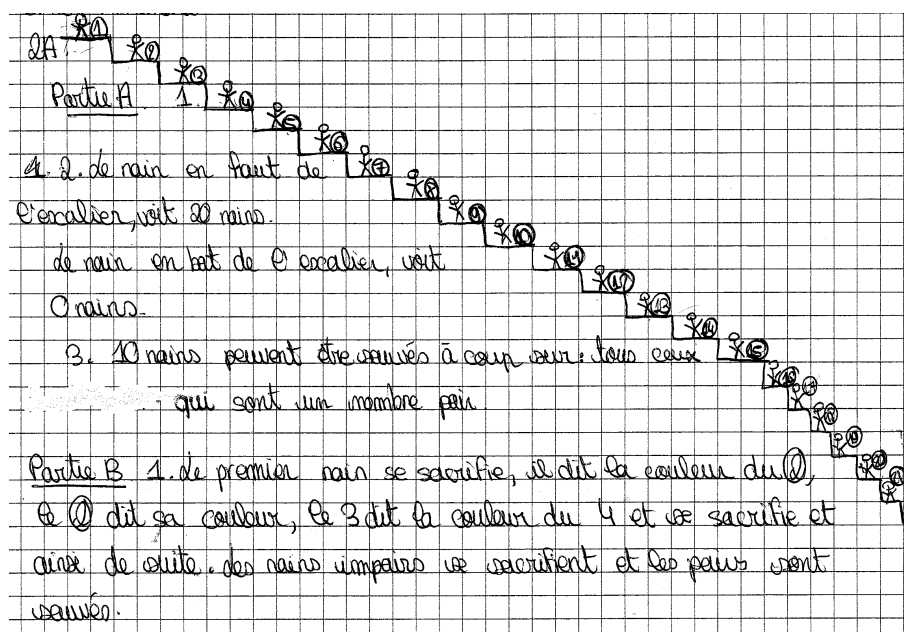 1
2A 2
3
Partie A 1. 4
5
6
1. 2. Le nain en haut de 7
8
l'escalier, voit 20 nains. 9
10
Le nain en bat de l'escalier, voit 11
12
0 nains. 13
14
3. 10 nains peuvent être sauvés à coup sur : tous ceux 15
16
qui sont un nombre pair.
Partie B 1. Le premier nain se sacrifie, il dit la couleur du 2,
le 2 dit sa couleur, le 3 dit la couleur du 4 et se sacrifie et
ainsi de suite. Les nains impairs se sacrifient et les pairs sont
sauvés.